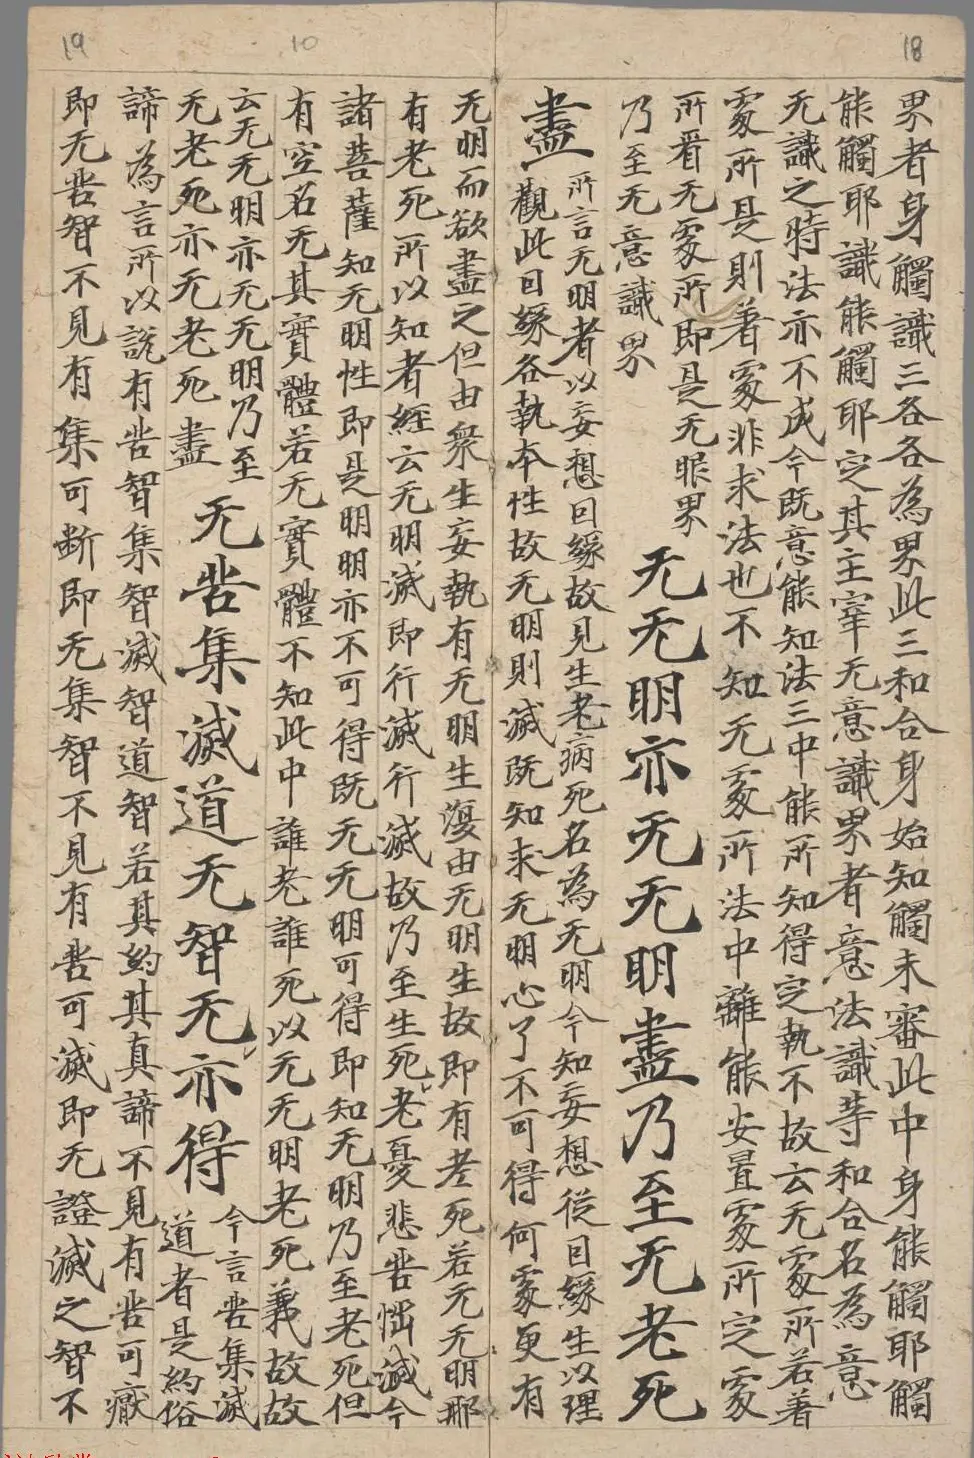 19 10 18
界者身觸識三各各為界此三和合身始知觸未審此中身能觸耶觸
能觸耶識能觸耶定其主宰无意識界者意法識等和合名為意
无識之時法亦不成今既意能知法三中能所知得定執不故云无處所若著
處所是則著處非求法也不知无處所法中離能安置處所定處
所看无處所即是无眼界
乃至无意識界
无无明亦无无明盡乃至无老死
盡
所言无明者以妄想因緣故見生老病死名為无明今知妄想從因緣生以理
觀此因緣各執本性故无明則滅既知求无明心了不可得何處更有
无明而欲盡之但由衆生妄執有无明生復由无明生故即有老死若无无明那
有老死所以知者經云无明滅即行滅行滅故乃至生死老憂悲苦惱滅今
諸菩薩知无明性即是明明亦不可得既无无明可得即知无明乃至老死但
有空名无其實體若无實體不知此中誰老誰死以无无明老死義故故
云无无明亦无无明乃至
无老死亦无老死盡
无苦集滅道无智无亦得
今言苦集滅
道者是約俗
諦為言所以說有苦智集智滅智道智若其約其真諦不見有苦可厭
即无苦智不見有集可斷即无集智不見有苦可滅即无證滅之智不